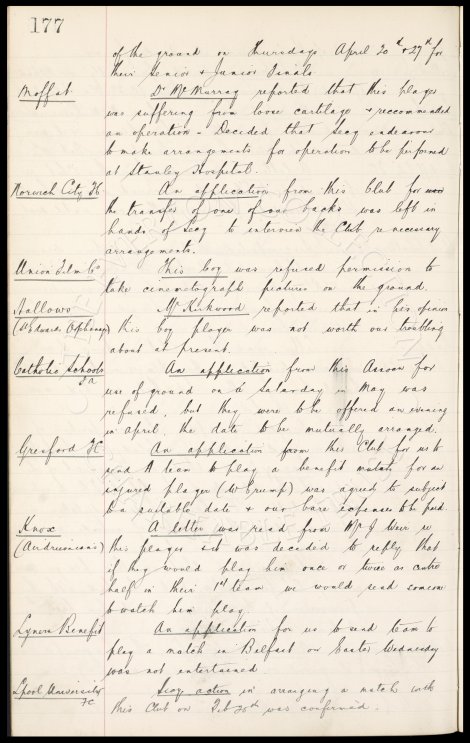 177
of the ground on Thursdays April 20th & 27th for
their Senior & Junior Finals
Moffat Dr McMurray reported that this player
was suffering from loose cartilage & reccommended
an operation - Decided that Secy endeavour
to make arrangements for operation to be performed
at Stanley Hospital
Norwich City FC An application from this Club for
the transfer of one of our backs was left in
hands of Secy to interview the Club re necessary
arrangements.
Union Film Co This Coy was refused permission to
take cinematograph pictures on the ground.
Hallows Mr Kirkwood reported that in his opinion
(St Edwards Orphanage) this boy player was not worth our troubling
about at present.
Catholic Schools An application from this Assocn for
use of ground on a Saturday in May was
refused, but they were to be offered an evening
in April, the date to be mutually arranged.
Gresford FC An application from this Club for us to
send A team to play a benefit match for an
injured player (W Crump) was agreed to subject
to a suitable date & our bare expenses to be paid.
Knox A letter was read from Mr J Weir re
(Airdrieonians) this player & it was decided to reply that
if they would play him once or twice as centre
half in their 1st team we would send someone
to watch him play
Lyners Benefit An application for us to send team to
play a match in Belfast on Easter Wednesday
was not entertained
Lpool University Secy action in arranging a match with
FC this Club on Feb was confirmed.